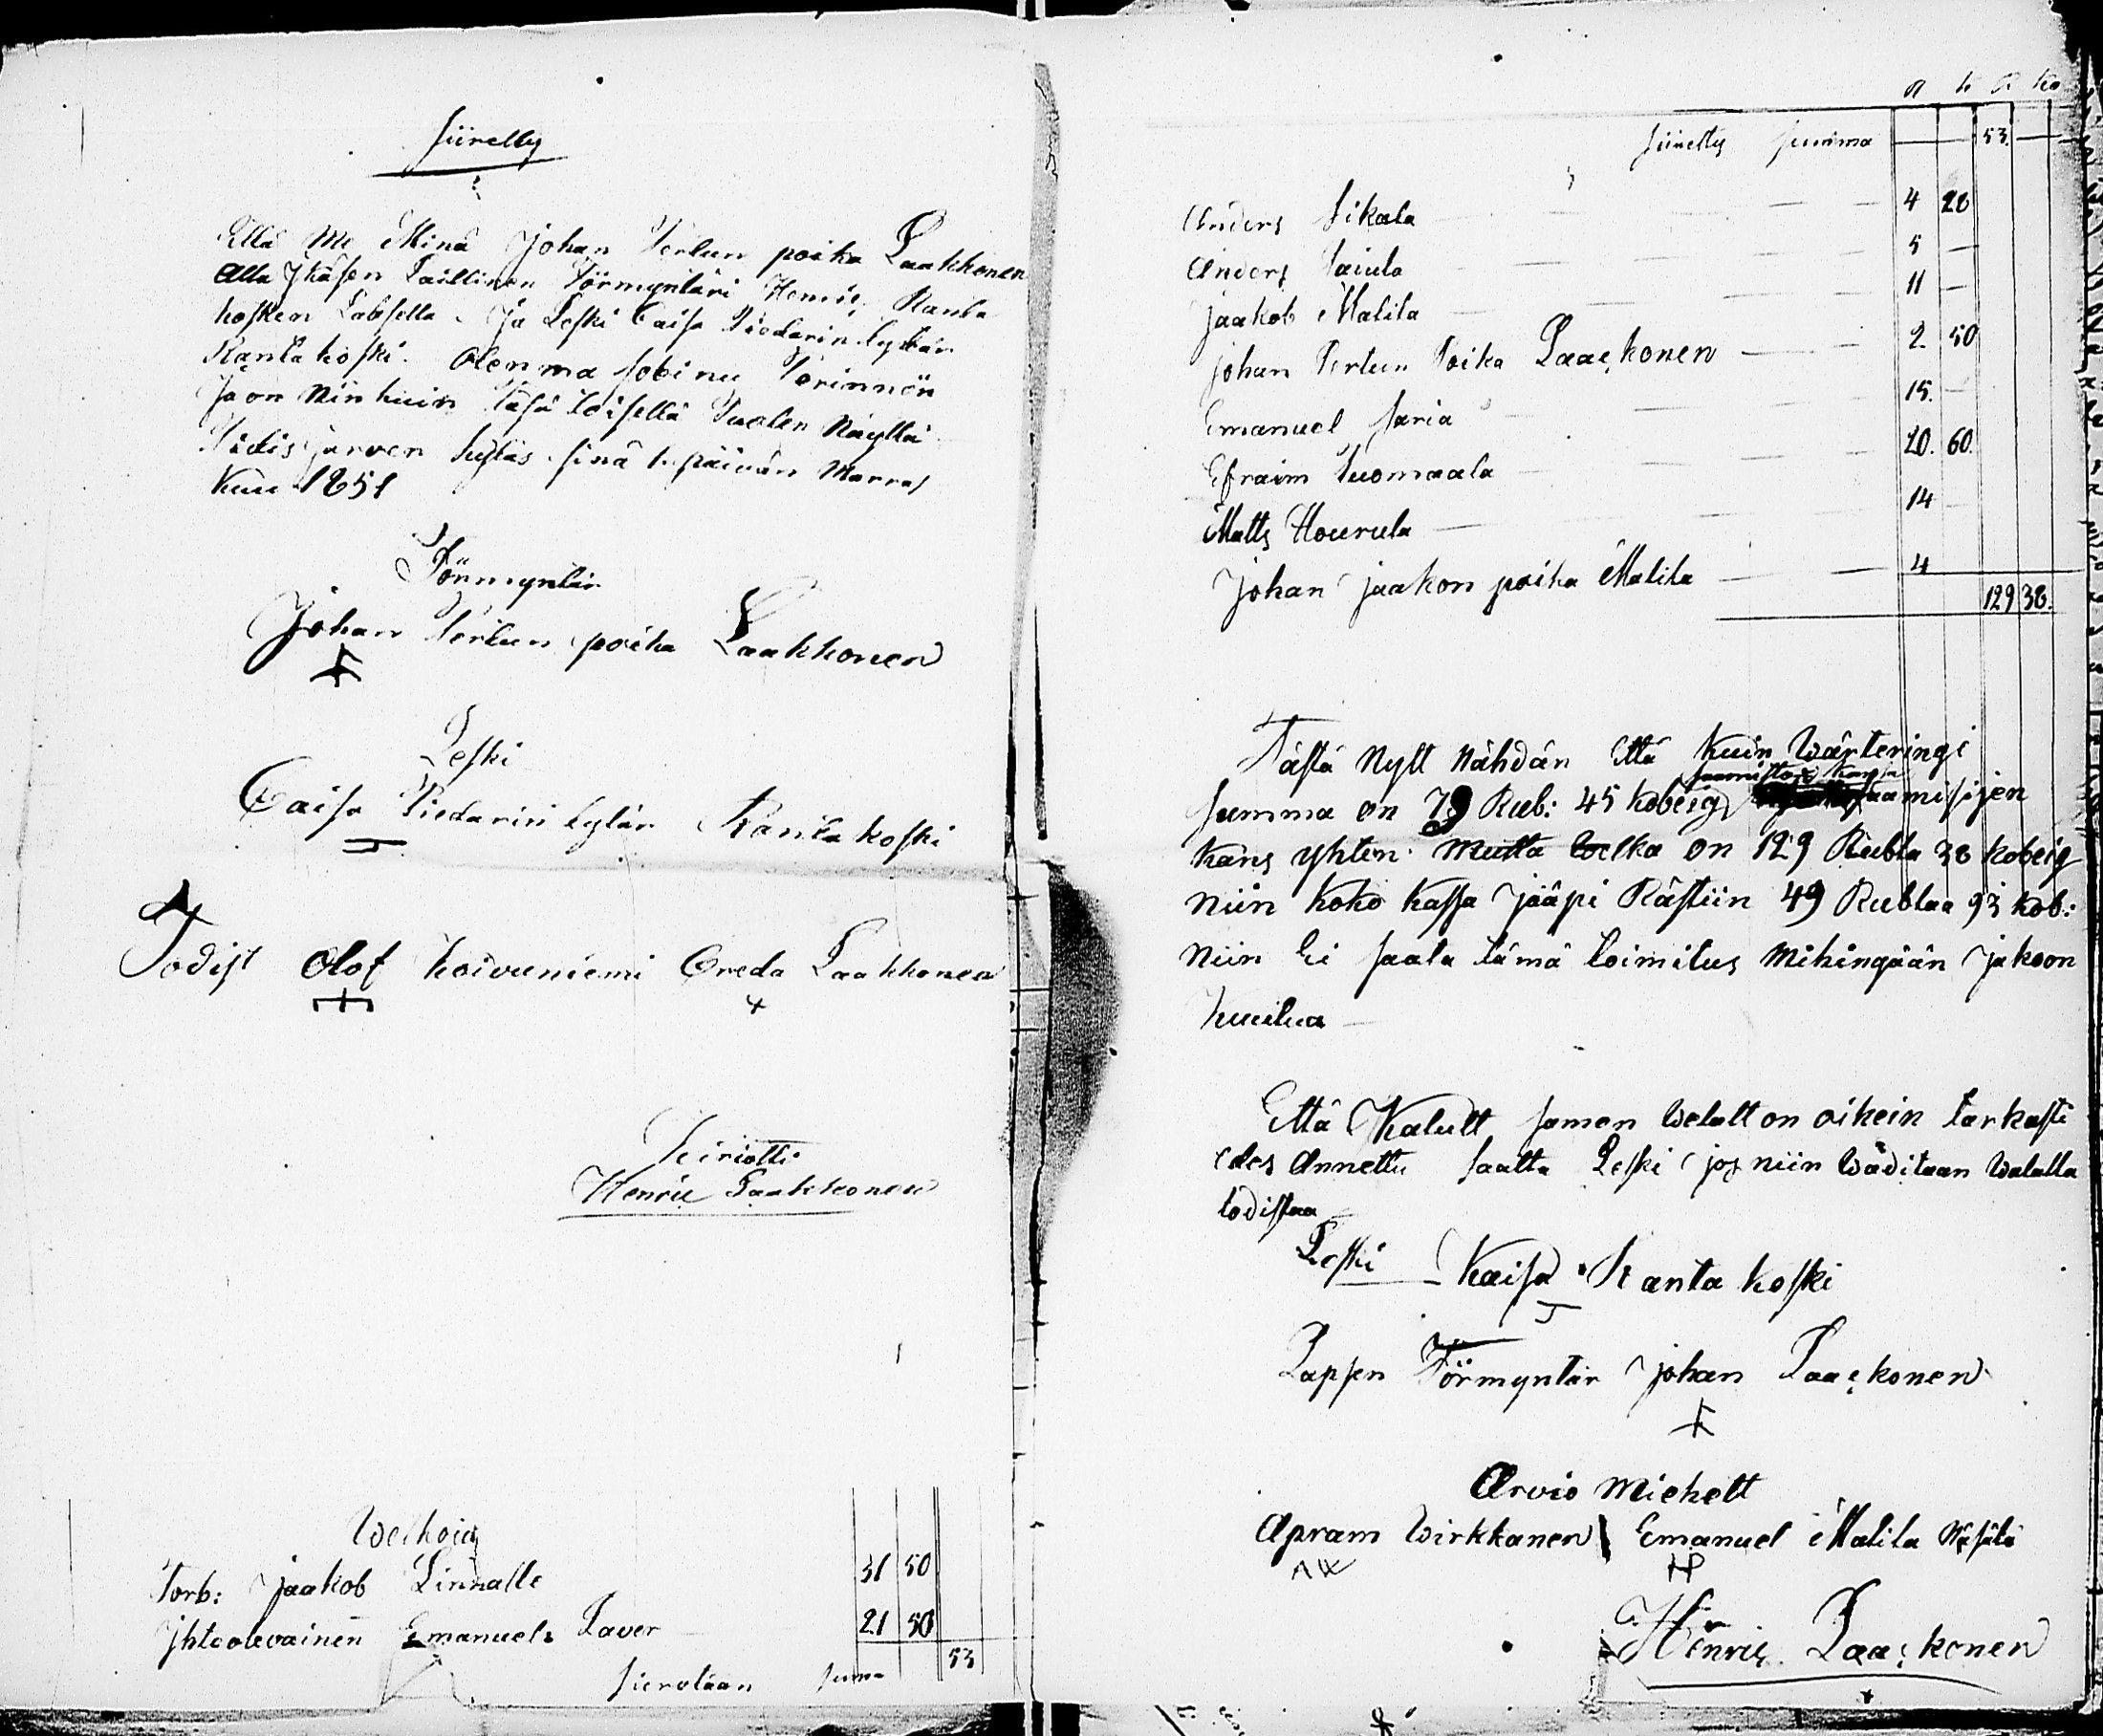 siiretty
Että Me Minä Johan Pertun poika Laakkonen
Alla Jkäsen Laillinen Förmyntäri Henric Ranta
kosken Labsella. Ja Leski Caisa Piedarin tytär
Ranta koski. Olenma sobinu Perinnön
Ja on Niin kuin Täsä toisella Puolen Näyttä
järven kyläs sinä 1. päivän Marras
kuu 1851
Förmyntär
Johan Pertun poika Laakkonen
Leski
Caisa Piedarin tytär Ranta koski
Todist Olof Koivuniemi Greda Laakkonen
kirioitti
Henric Laakkonen
Welkoja
Torb: Jaakob Linnalle 31 50
Yhteolevainen Emanuel Laver 21 50
siirotaan summa 53
R k R ko
siiretty summa 53
Anders Sikala 4 28
Anders Paiula 5
Jaakob Malila 11
Johan Pertun Poika Laackonen 2 50
Emanuel Saria 15
Efraim Tuomaala 20. 60.
Matts Hourula 14
Johan Jaakon poika Malila 4
129 38.
Tästä Nytt Nähdän Että kuin Wärteringi
summa on 79 Rub: 45 kobeig saamisijen
kans yhten Mutta welka on 129 Rubla 38 kobeig
niin koko kassa jääpi Rästiin 49 Rublaa 93 kob:
niin Ei saata tämä toimitus mihingään jakoon
kuulua
Että Kalutt samon welatt on oikein tarkasti
edes Annettu saatta Leski jos niin wäditaan walalla
todistaa
Leski Kaisa Ranta koski
Lapsen Förmyntär Johan Laackonen
Arvio miehett
Apram Wirkkanen Emanuel Malila
AW
Henric Laackonen